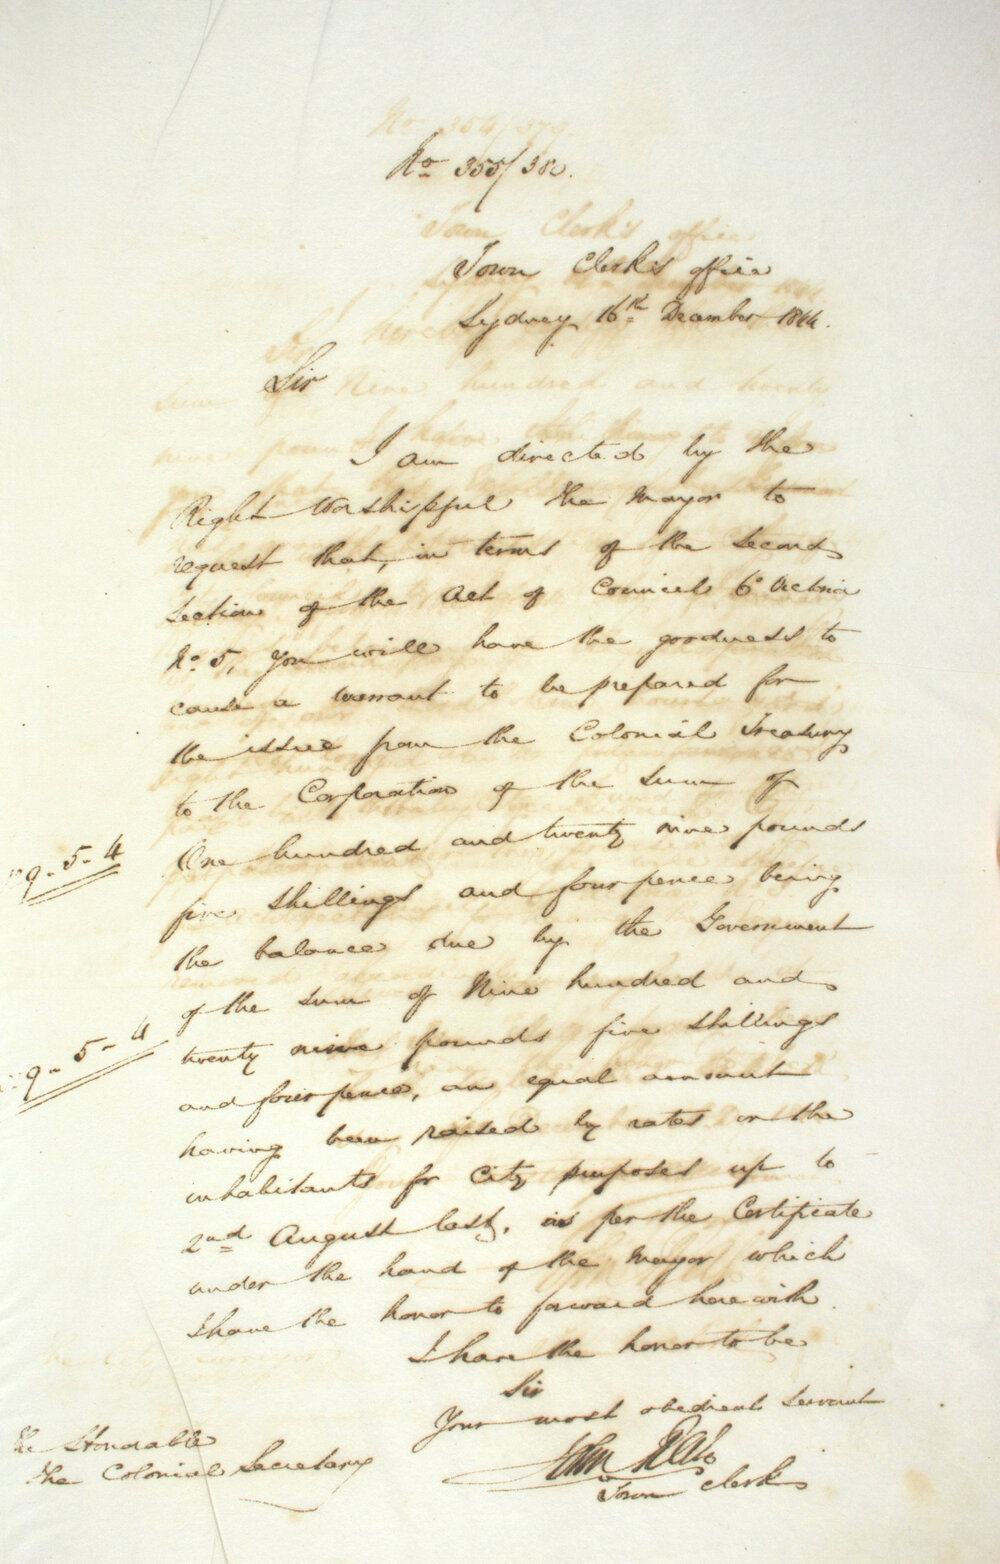 No 355/380.
Town Clerk's office
Sydney 16th December 1844.
Sir
I am directed by the
Right Worshipful the Mayor to
request that, in terms of the second
section of the Act of Council 6o Victoria
No 5, you will have the goodness to
cause a warrant to be prepared for
the issue from the Colonial Treasury
to the Corporation of the sum of
One hundred and twenty nine pounds
five shillings and fourpence being
the balance due by the Government
of the sum of Nine hundred and
twenty nine pounds five shillings
and fourpence, an equal amount
having been raised by rates on the
inhabitants for City purposes up to
2nd August last, as per the Certificate
under the hand of the Mayor which
I have the honor to forward herewith.
I have the honor to be
Sir
Your most obedient Servant
John
Town Clerk
The Honorable
The Colonial Secretary
9-5-4
9-5-4